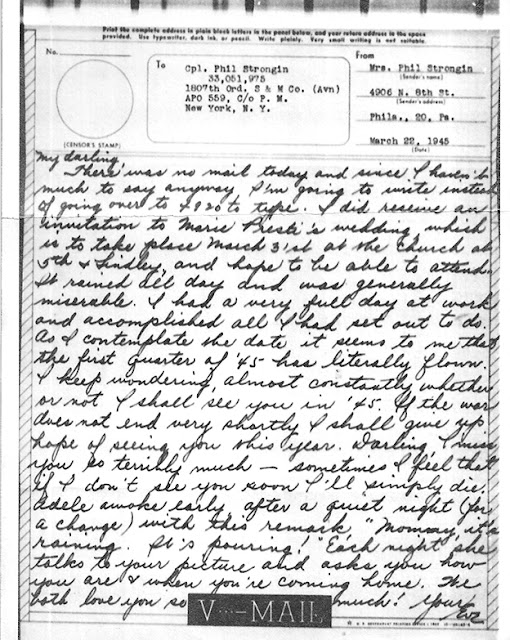 Print the complete address in plain block letters in the panel below, and your return address in the space
provided. Use typewriter, dark ink, or pencil. Write plainly. Very small writing is not suitable.
No.
To
Cpl. Phil Strongin
33,051,975
1807th Ord. S & M Co. (Avn)
APO 559, C/o P. M.
New York, N. Y.
From
Mrs. Phil Strongin
(Sender's name)
4906 N. 8th St.
(Sender's address)
Phila., 20, Pa.
March 22, 1945
(Date)
(CENSOR'S STAMP)
My darling,
There was no mail today and since I haven't
much to say anyway, I'm going to write instead
of going over to 4920 to type. I did receive an
invitation to Marie wedding which
is to take place March 31st at the church at
5th & Lindley, and hope to be able to attend.
It rained all day and was generally
miserable. I had a very full day at work
and accomplished all I had set out to do.
As I contemplate the date it seems to me that
the first quarter of '45 has literally flown.
I keep wondering, almost constantly, whether
or not I shall see you in '45. If the war
does not end very shortly I shall give up
hope of seeing you this year. Darling, I miss
you so terribly much — sometimes I feel that
if I don't see you soon I'll simply die.
Adele awoke early, after a quiet night (for
a change) with this remark "Mommy, it's
raining. It's pouring!" Each night she
talks to your picture and asks you how
you are & when you're coming home. We
both love you so much! Your
Ev
V···—MAIL